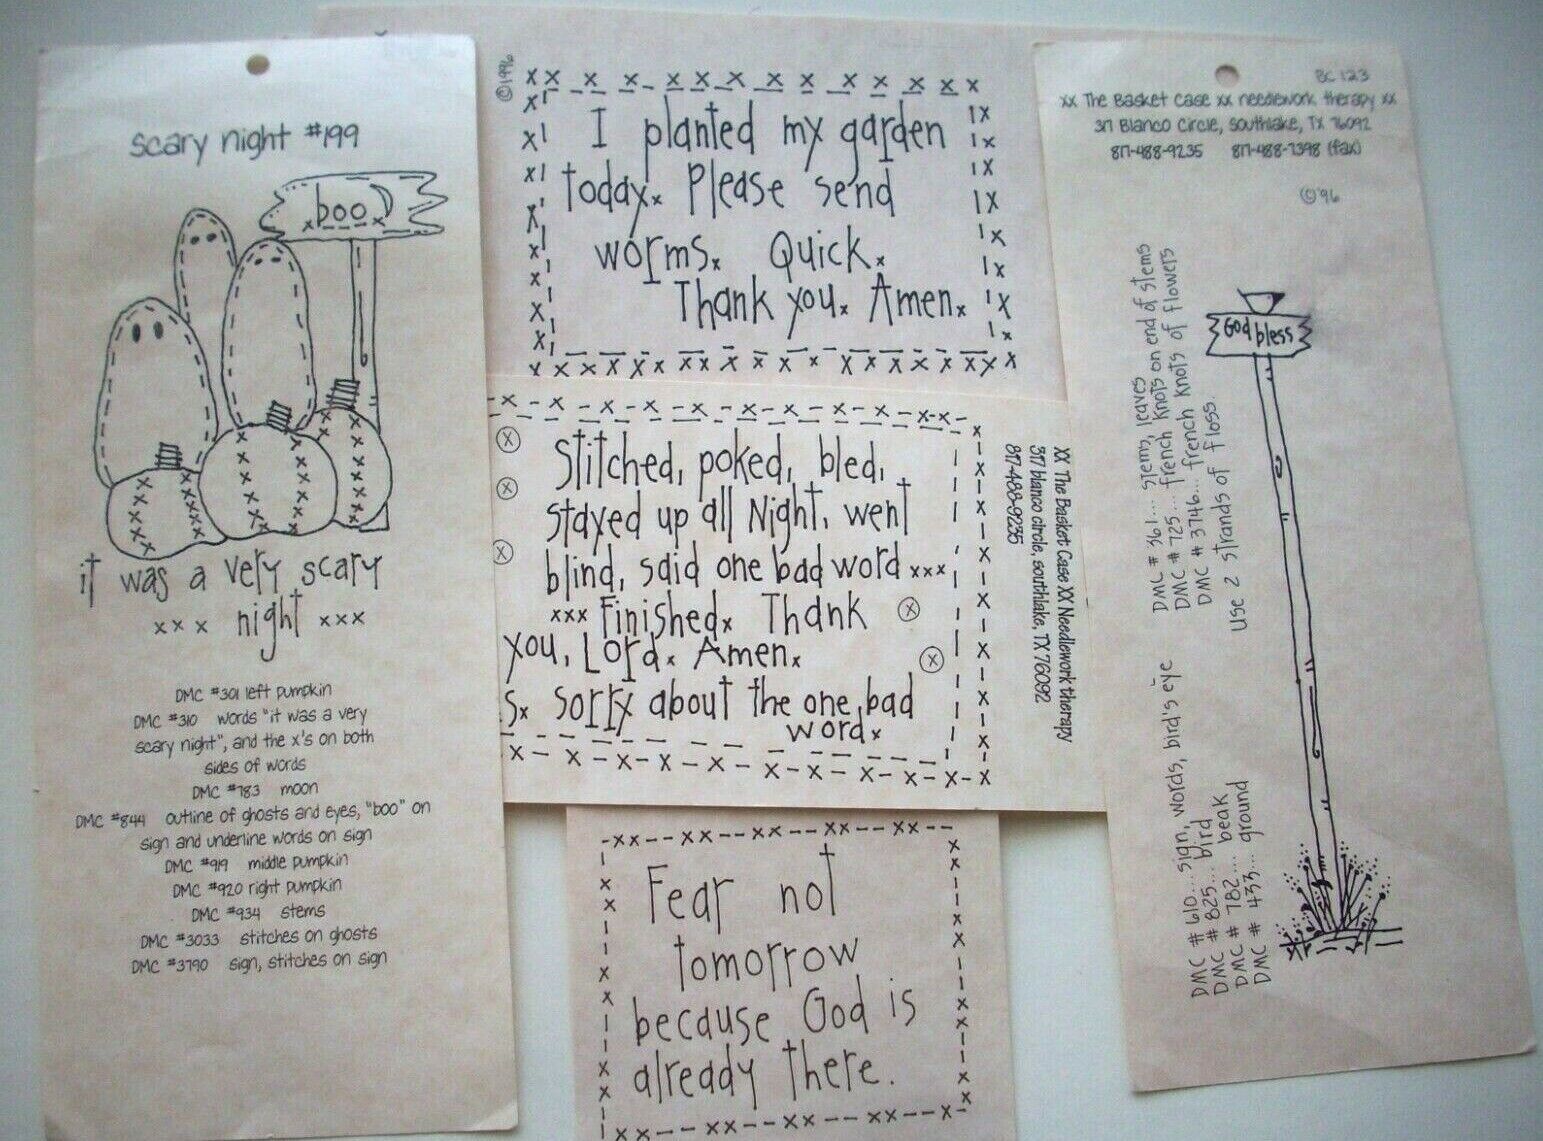 scary night #199
boo
it was a very scary
xxx night xxx
DMC #301 left pumpkin
DMC #310 words "it was a very
scary night", and the x's on both
sides of words
DMC #783 moon
DMC #844 outline of ghosts and eyes, "boo" on
sign and underline words on sign
DMC #919 middle pumpkin
DMC #920 right pumpkin
DMC #934 stems
DMC #3033 stitches on ghosts
DMC #3790 sign, stitches on sign
©1996
I planted my garden
today. Please send
worms. Quick.
Thank you. Amen.
Stitched, poked, bled,
stayed up all Night, went
blind, said one bad word xxx
xxx Finished. Thank
you, Lord. Amen.
S. sorry about the one bad
word.
XX The Basket Case XX Needlework therapy
317 blanco circle, southlake, TX 76092
817-488-9235
Fear not
tomorrow
because God is
already there.
BC 123
xx The Basket Case xx needlework therapy xx
317 Blanco Circle, Southlake, TX 76092
817-488-9235 817-488-7398 (fax)
©'96
God bless
DMC # 361.... stems, leaves
DMC # 725... french knots on end of stems
DMC # 3746... french knots of flowers
Use 2 strands of floss.
DMC # 610... sign, words, bird's eye
DMC # 825... bird
DMC # 782.... beak
DMC # 433.... ground